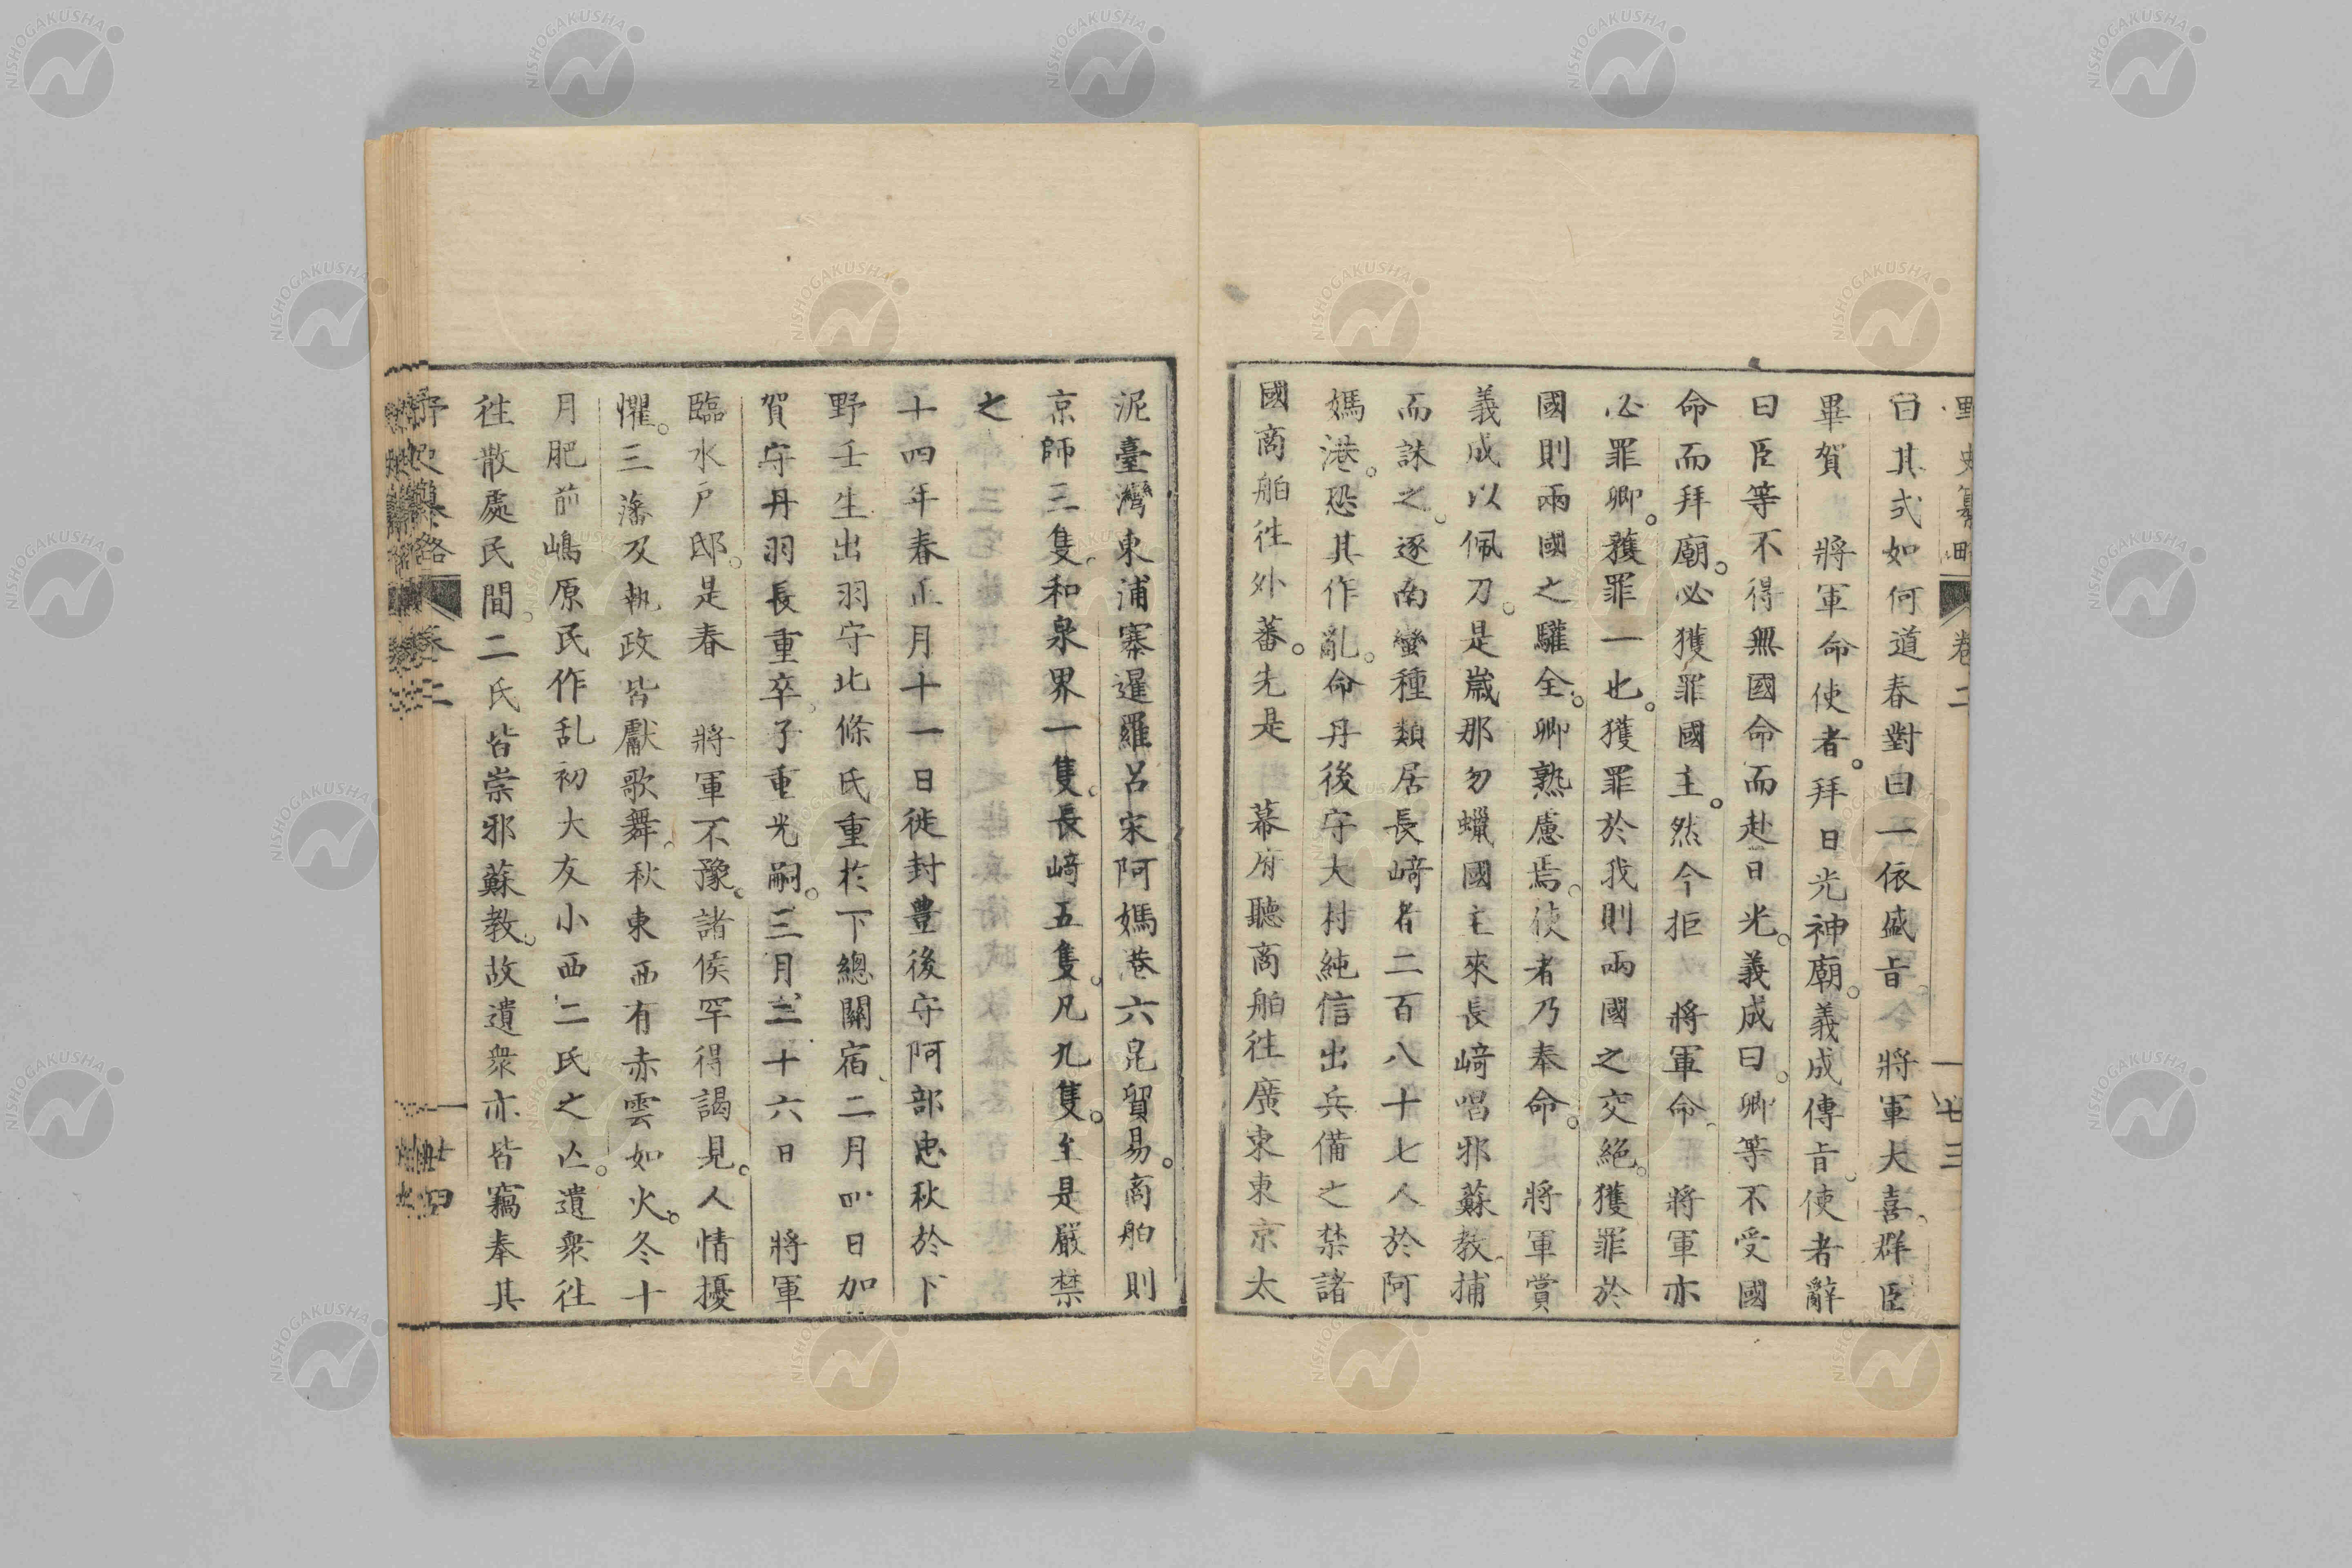 野史纂略 卷二 廿三
曰其式如何道春對曰一依盛旨。將軍大喜。群臣
畢賀 將軍命使者。拜日光神廟。義成傳旨。使者辭
曰臣等不得無國命而赴日光。義成曰。卿等不受國
命而拜廟。必獲罪國主。然今拒 將軍命。 將軍亦
必罪卿。獲罪一也。獲罪於我則兩國之交絕。獲罪於
國則兩國之驩全。卿熟慮焉。使者乃奉命。 將軍賞
義成以佩刀。是歲那勿蠟國主來長﨑唱邪蘇教。捕
而誅之。逐南蠻種類居長﨑者二百八十七人於阿
媽港。恐其作亂。命丹後守大村純信出兵備之禁諸
國商舶徃外蕃。先是 幕府聽商舶徃廣東東京太
泥臺灣東浦寨暹羅呂宋阿媽巷六昆貿易。商舶則
京師三隻。和泉界一隻。長﨑五隻。凡九隻。至是嚴禁
之
十四年春正月十一日徙封豊後守阿部忠秋於下
野壬生出羽守北條氏重於下總關宿、二月四日加
賀守丹羽長重卒。子重光嗣。三月三十六日 將軍
臨水戶邸。是春 將軍不豫。諸侯罕得謁見。人情擾
懼。三藩及執政皆獻歌舞。秋東西有赤雲如火。冬十
月肥前嶋原民作乱初大友小西二氏之亾。遺衆徃
徃散處民間。二氏皆崇邪蘇教。故遺衆亦皆竊奉其
野史纂略 卷二 廿四
NISHOGAKUSHA